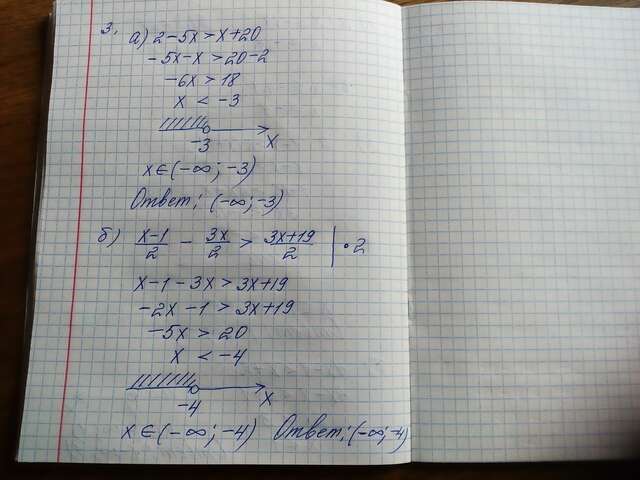 3. а) 2-5x>x+20
-5x-x > 20-2
-6x > 18
x < -3
-3 x
x∈(-∞; -3)
Ответ: (-∞; -3)
б) \frac{x-1}{2} - \frac{3x}{2} > \frac{3x+19}{2} | • 2
x-1-3x > 3x+19
-2x-1 > 3x+19
-5x > 20
x < -4
-4 x
x∈(-∞; -4) Ответ: (-∞; -4)